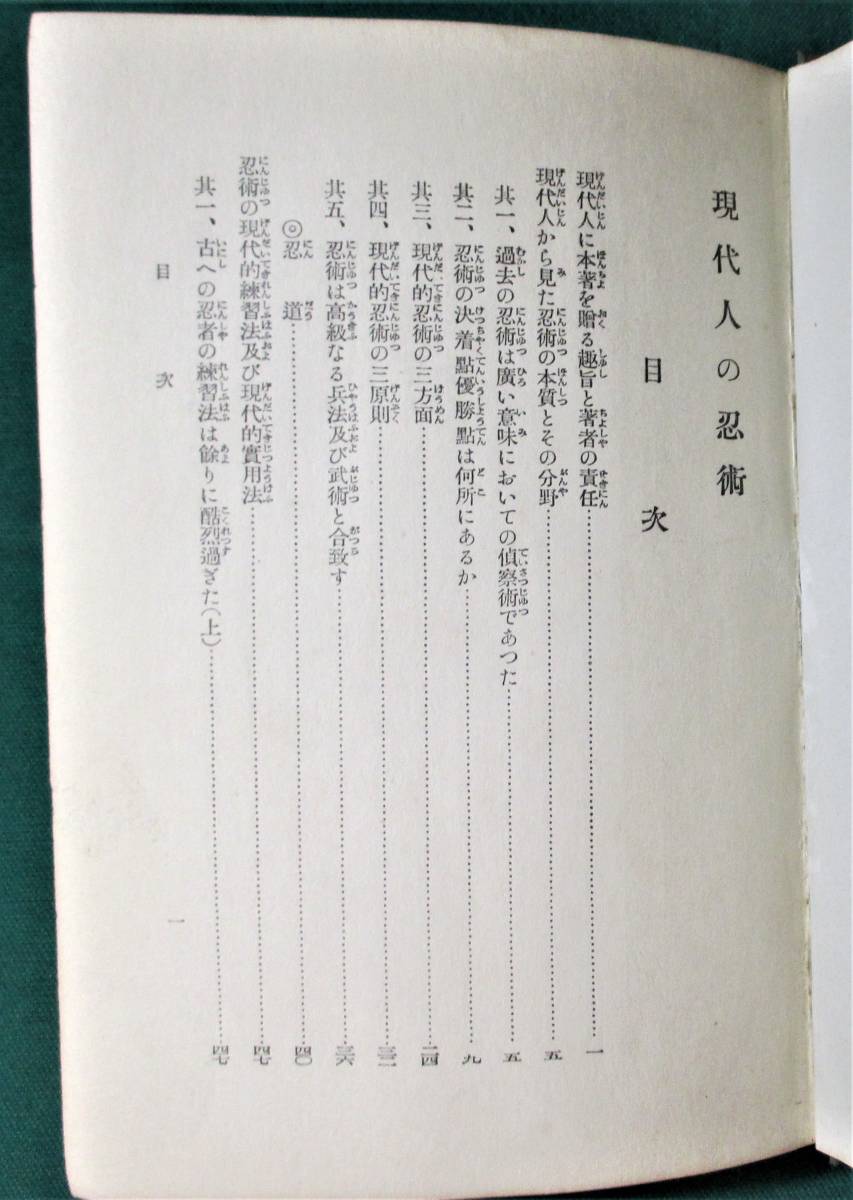 現代人の忍術
目次
現代人に本著を贈る趣旨と著者の責任……一
現代人から見た忍術の本質とその分野……五
其一、過去の忍術は廣い意味においての偵察術であつた……五
其二、忍術の決着點優勝點は何所にあるか……九
其三、現代的忍術の三方面……一四
其四、現代的忍術の三原則……三二
其五、忍術は高級なる兵法及び武術と合致す……三六
◎忍道……四〇
忍術の現代的練習法及び現代的實用法……四七
其一、古への忍者の練習法は餘りに酷烈過ぎた(上)……四七
目次
一